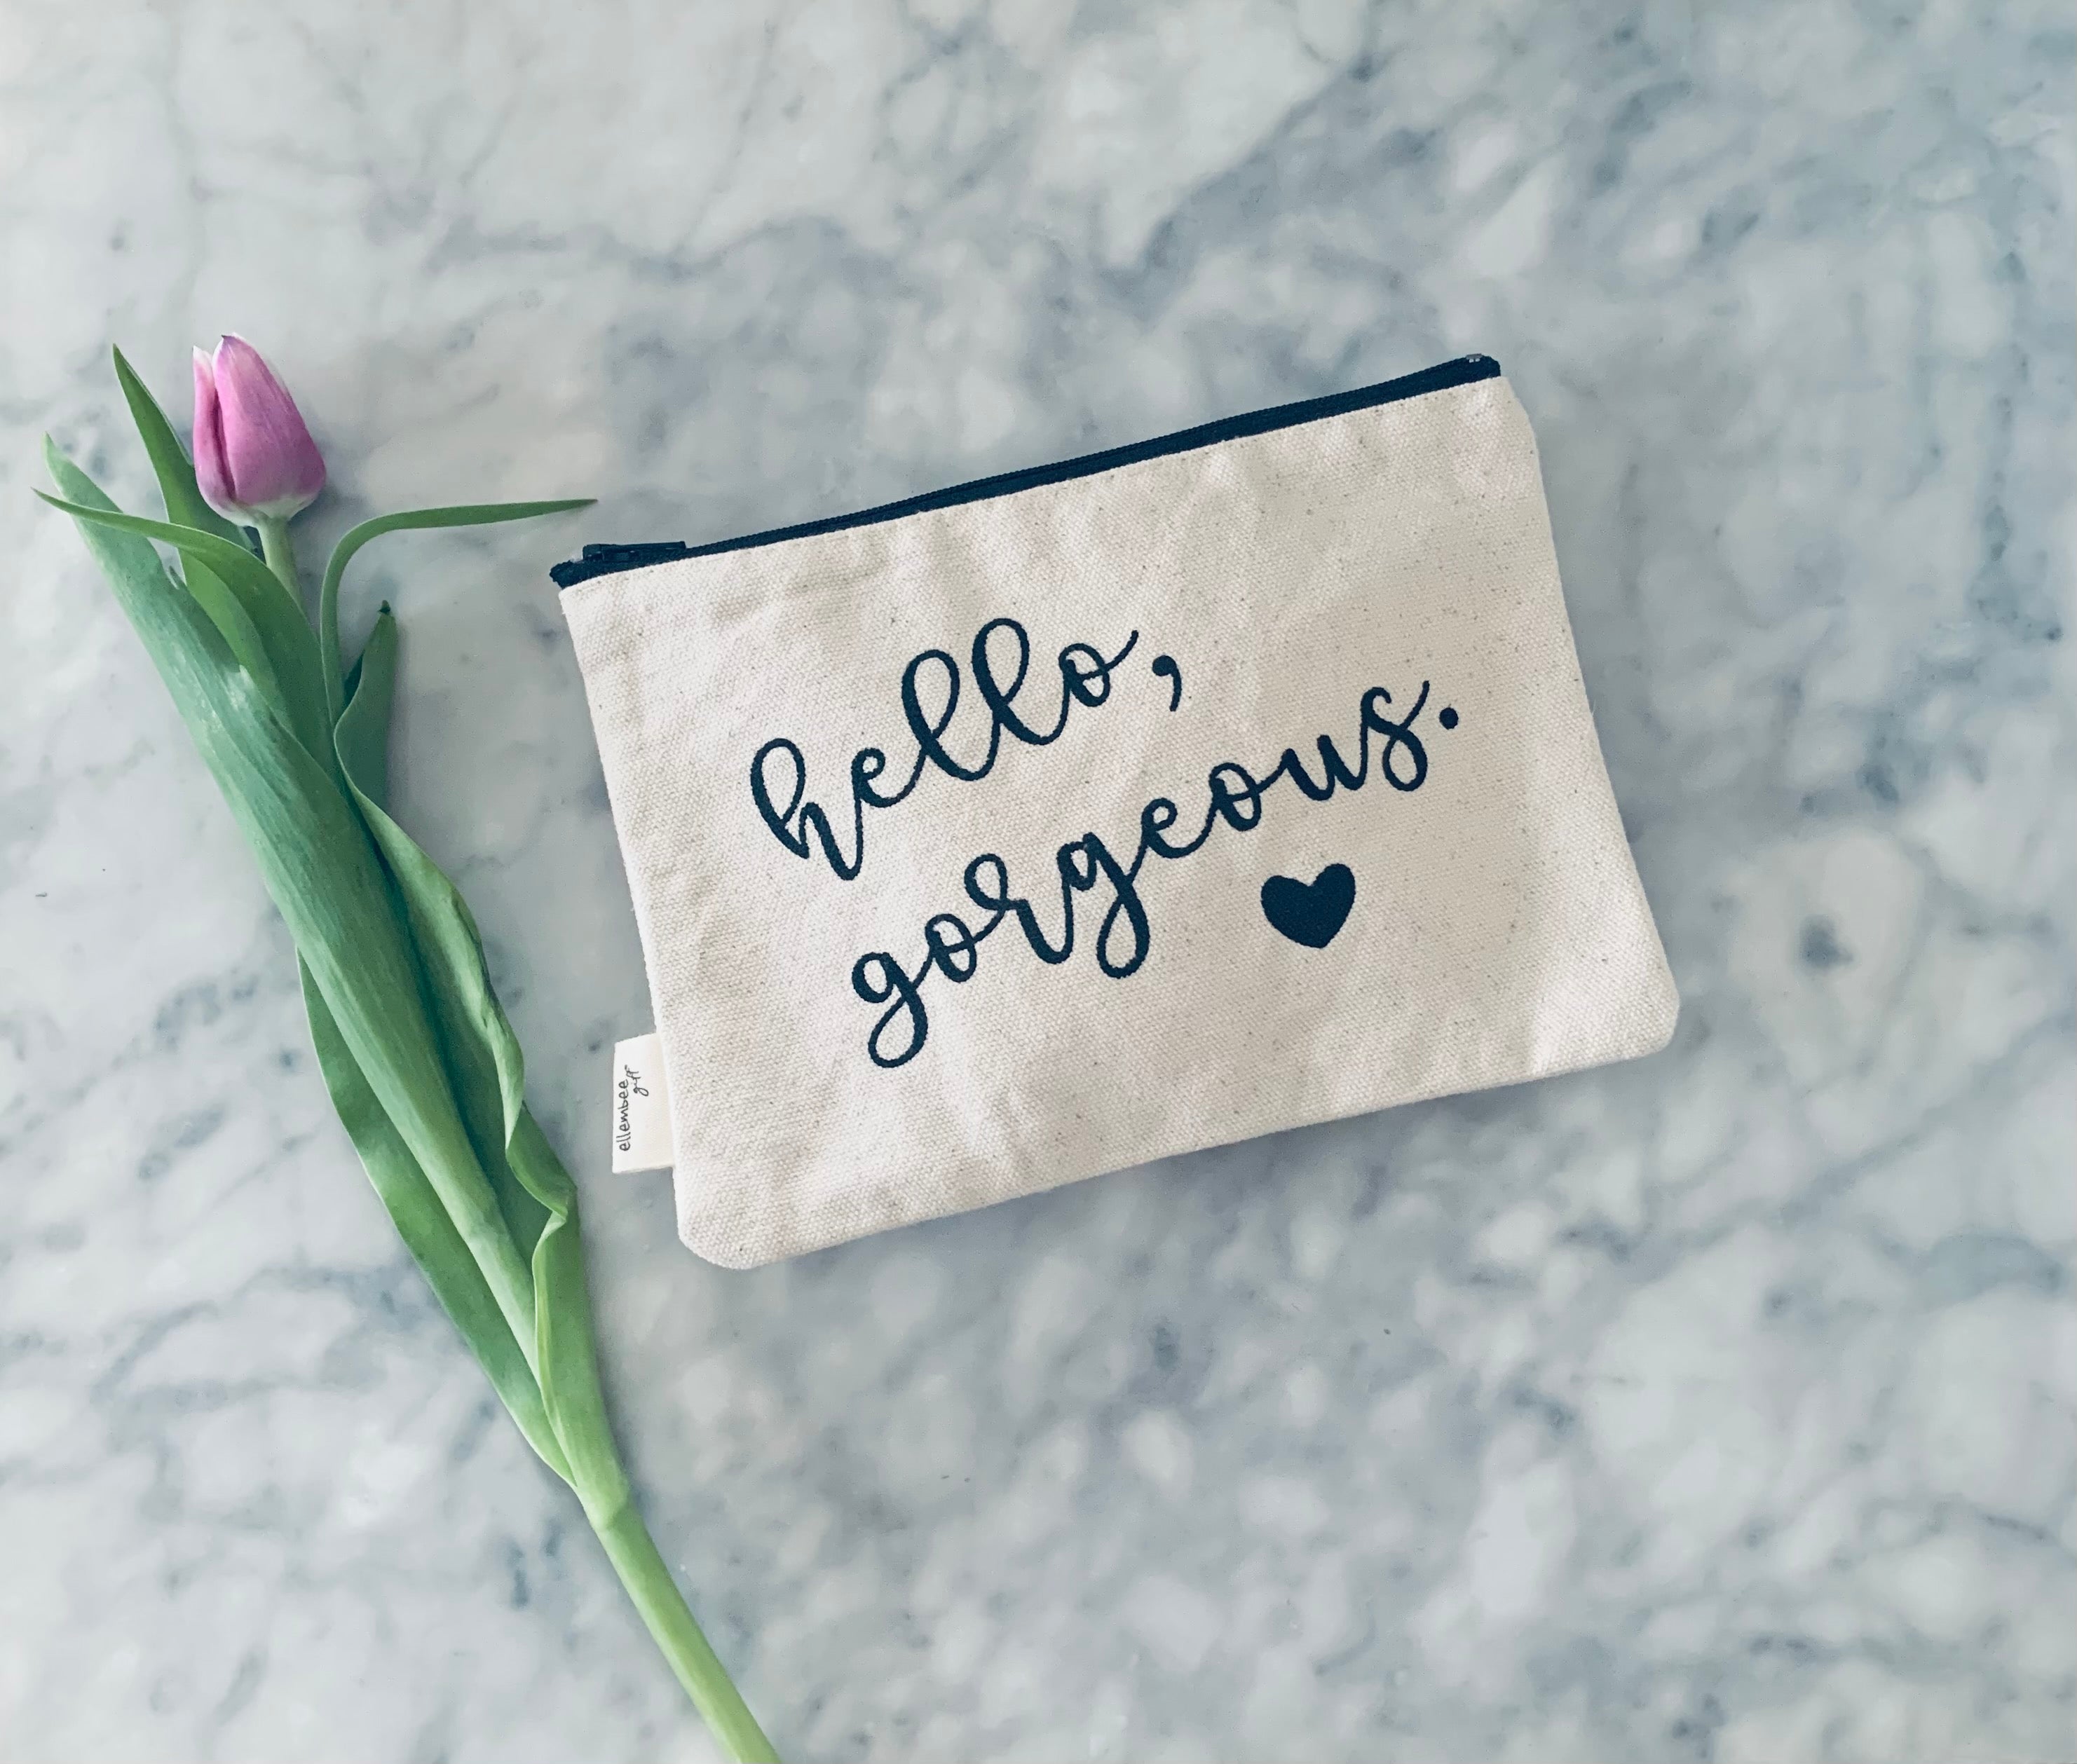 hello,
gorgeous.
ellembee
gift